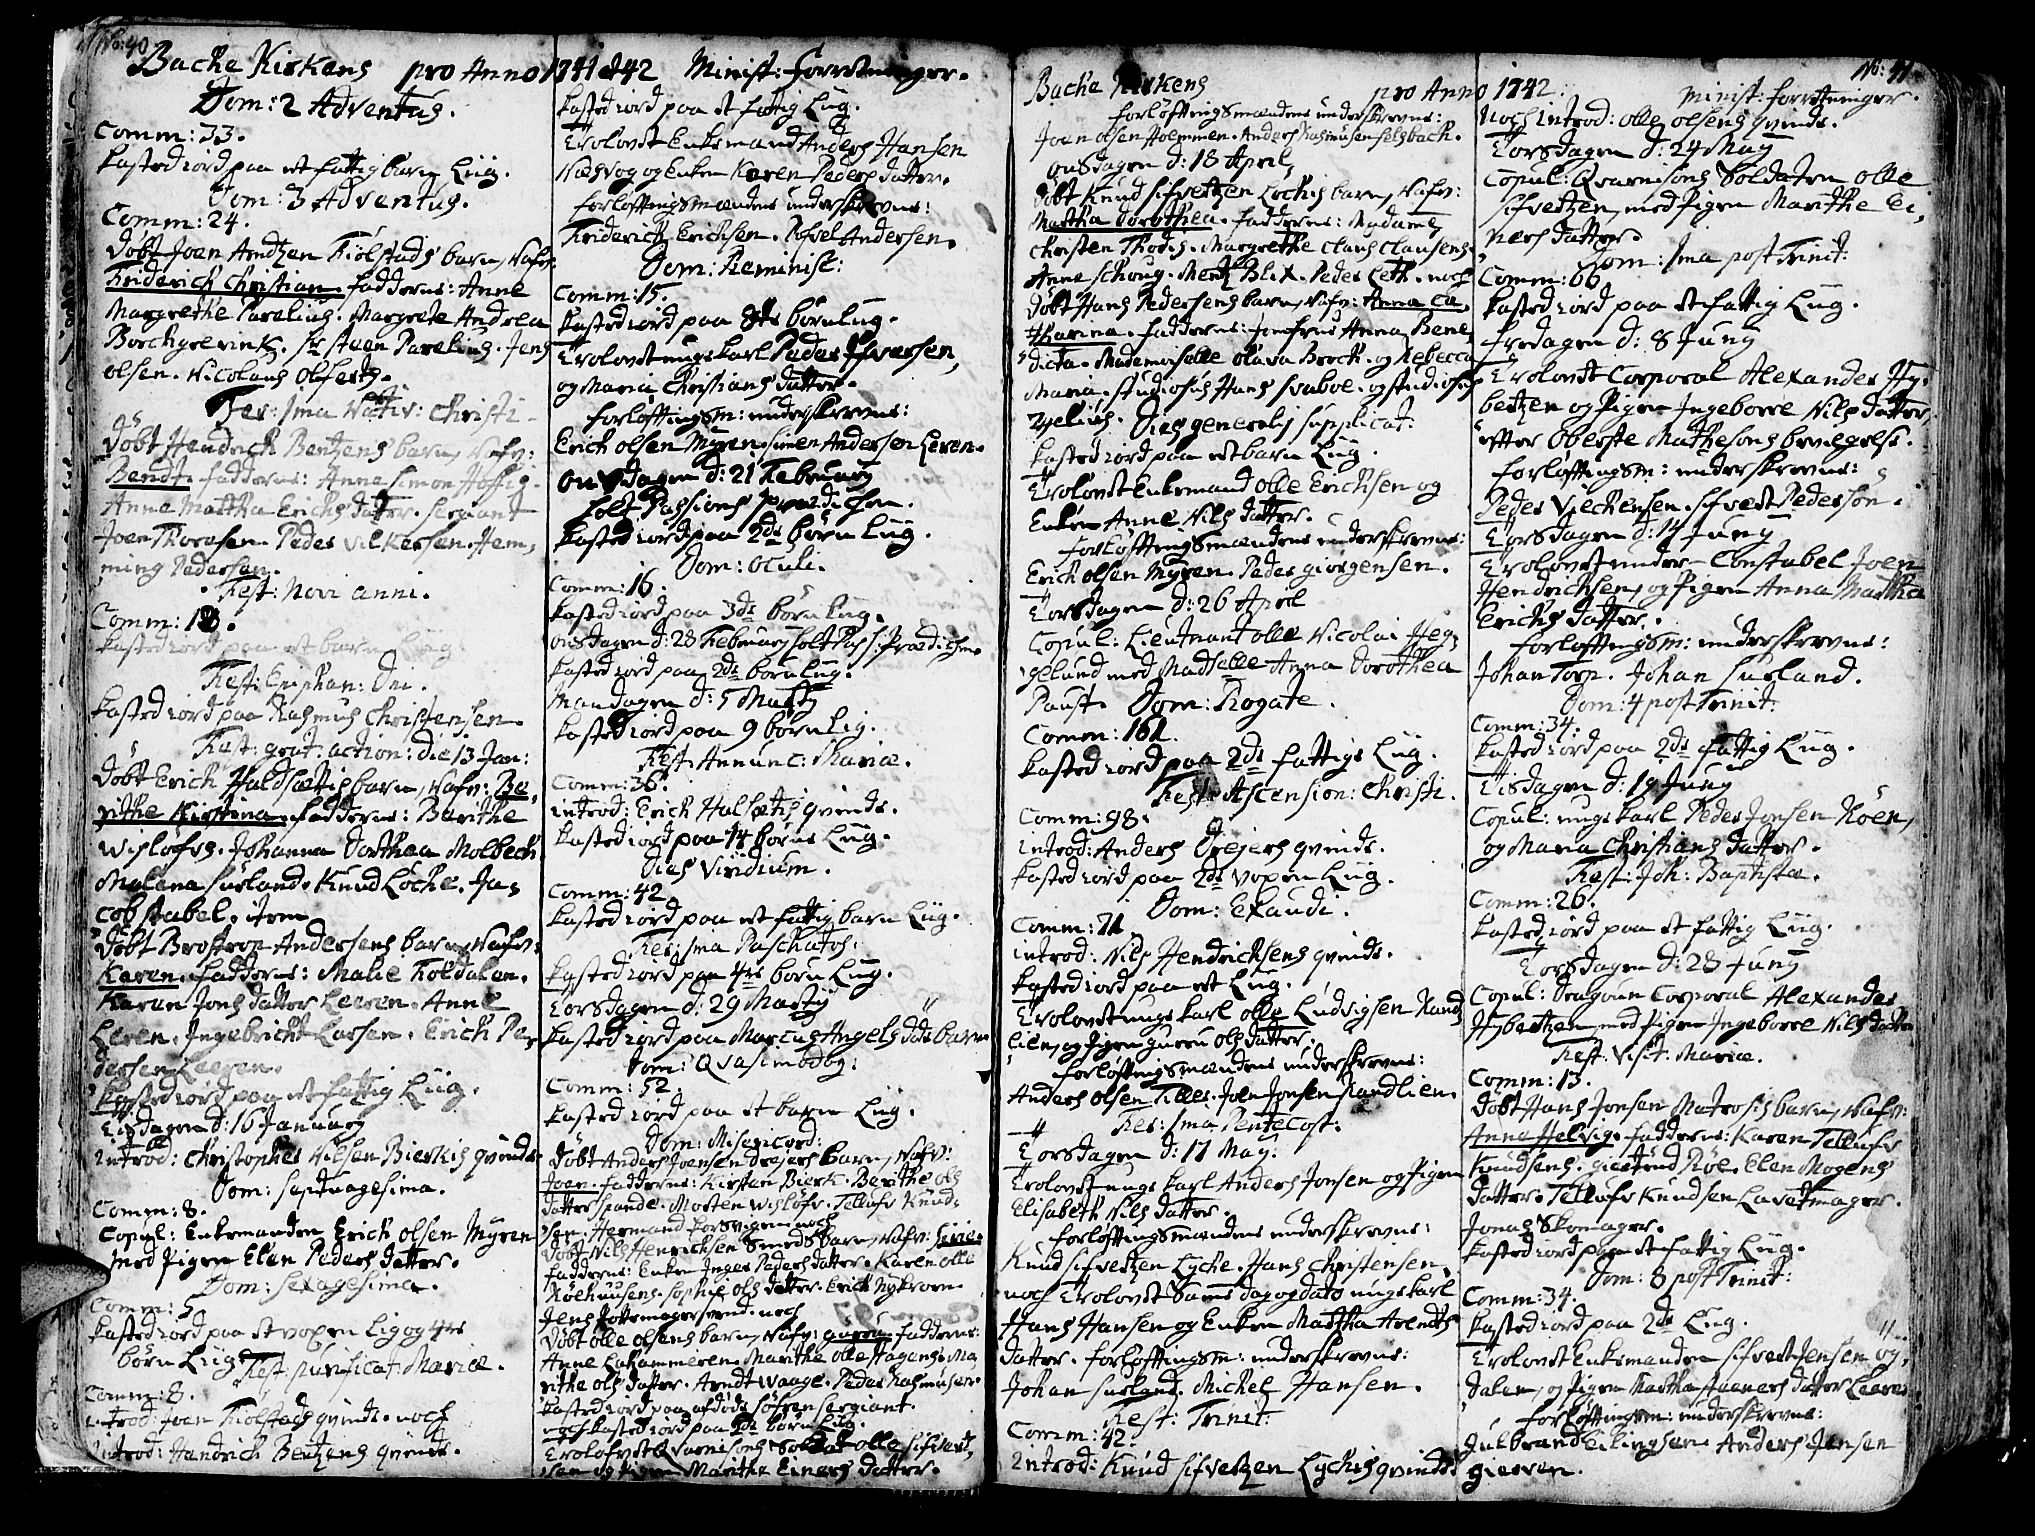 No: 40.
Backe Kirkens pro Anno 1741 et 42 Minist: forretninger.
Dom: 2 Adventus.
Comm: 33.
Kasted iord paa et fattig barn Liig.
Dom: 3 Adventus.
Comm: 24.
Döbt Joen Arndtzen Fiölstads barn, Nafn:
Friderich Christian. fadderne: Anne
Margrethe Parelius. Margrete Andrea
Borchgrevink. Sr Steen Parelius. Jens
Olsen. Nicolaus Olfertz.
Fer: 1ma Nativ: Christi
Döbt Hendrich Bentzens barn, Nafn:
Bendt. fadderne: Anne Simon Hoffig.
Anna Martha Erichs datter. Sergiant
Joen Thoresen. Peder Vilkersen. Hem,
ming Pedersen.
Fest: Novi anni.
Comm: 18.
Kasted iord paa et barn Liig.
Fest: Epiphan: Dni.
Kasted iord paa Rasmus Christensen.
Fest: grat: action: die 13 Jan:
Döbt Erich Haldsættis barn, Nafn: Be,
rithe Kirstina. fadderne: Barithe
Wislöfvs. Johanna Dorthea Molbech
Malena Surland. Knud Löche. Ja,
cob Stabel. item
Döbt Brostrop Andersens barn, Nafn:
Karen. fadderne: Malie Foldalen.
Karen Jons datter Leeren. Anne
Leren. Ingebricht Larsen. Erich Pe,
dersen Leeren.
Kasted iord paa et fattig Liig.
Tisdagen d: 16 January
introd: Christopher Nilsen Bierkis qvinde.
Dom: Septuagesima.
Comm: 8.
Copul: Enkemanden Erich Olsen Myren
med Pigen Elen Peders datter.
Dom: Sexagesima.
Comm: 5
Kasted iord paa et voxen Lig og 4re
börn Liig.
Fest: purificat: Mariæ.
Comm: 8.
introd: Joen Fiölstads qvinde. noch
introd: Hendrich Bentzens qvinde.
Kasted iord paa et fattig Liig.
Trolovet Enkemand Anders Hansen
Næsvog og Enken Karen Peders datter.
forlöftningsmændene underskrevne:
Friderich Erichsen. Pofvel Andersen.
Dom: Reminisc:
Comm: 15.
Kasted iord paa 8te börn Liig.
Trolovet ungkarl Peder Ifversen,
og Maria Christians datter.
forlöftningsm: underskrevne:
Erich Olsen Myren. Simen Andersen Leren.
Onsdagen d: 21 February
holt Passions Prædichen.
Kasted iord paa 2de börn Liig.
Dom: Oculi.
Comm: 16.
Kasted iord paa 3de börn Liig.
Onsdagen d: 28 February holt Pass: Prædichen
Kasted iord paa 2de börn Liig.
Mandagen d: 5 Marty
Kasted iord paa 9 börn Lig.
Fest: Annunc: Mariæ.
Comm: 36.
introd: Erich Halsætis qvinde.
Kasted iord paa 14 börns Liig.
Dies Viridium.
Comm: 42.
Kasted iord paa et fattig barn Liig.
Fer: 1ma Paschatos:
Kasted iord paa 4re börn Liig.
Torsdagen d: 29 Marty
Kasted iord paa Marcus Angels ddt barn
Dom: Qvasimodog:
Comm: 52.
Kasted iord paa et barn Liig.
Dom: Misericord:
Döbt Anders Joensen Drejers barn, Nafn:
Joen. fadderne: Kirsten Bierk. Berithe Ols
datter Spande. Morten Wislöfv. Tellufv Knud,
sen. Hermand Forsvigen. noch
Döbt Nils Henrichsen Smeds barn, Nafn: Siriæ.
fadderne: Enken Inger Peders datter. Karen Olle
Röehuusens. Sophie Ols datter. Erich Nykroen.
Jens Pottemagersvend. noch
Döbt Olle Olsens barn, Nafn: Guru. fadderne:
Anne Lohammeren. Marithe Olle Hagens. Ma,
rithe Ols datter. Arndt Waage. Peder Rasmusen.
Kasted iord paa afdöde Söfren Sergiant.
noch Kasted iord paa 2de börn Liig.
Trolofvet Qvarnisons Soldat Olle Sifvert,
sen og Pigen Marithe Einers datter.
Bache Kirkens pro Anno 1742. Minist: forretninger.
No: 41.
forlöftningsmændene underskrevne:
Joen Olsen Hoemmen. Anders Rasmusen Selsbach.
Onsdagen d: 18 April,
Döbt Knud Sifvertzen Löchis barn, Nafn:
Martha Dorothea. fadderne: Mydame
Christen Thodes. Margrethe Claus Clausens.
Anne Schoug. Mentz Blix. Peder Leth. noch
Döbt Hans Pedersens barn, Nafn: Anna Ca,
tharina. fadderne: Jomfrue Anna Bene,
dicta. Mademoiselle Olava Brock. og Rebecca
Maria. Studiosus Hans Svaboe. og Studiosus
Zyelius. Dies generalis supplicat:
Kasted iord paa et barn Liig.
Trolovet Enkemand Olle Erichsen og
Enken Anne Nils datter.
forlöftningsmændene underskrevne:
Erich Olsen Myren. Peder Giorgensen.
Torsdagen d: 26 April
Copul: Lieutnant Olle Nicolai Heg,
gelund med Madselle Anna Dorothea
Paust. Dom: Rogate.
Comm: 161.
Kasted iord paa 2de fattigs Liig.
Fest: Ascension: Christi.
Comm: 98.
introd: Anders Drejers qvinde.
Kasted iord paa 2de voxen Liig.
Dom: Exaudi.
Comm: 71.
introd: Nils Hendrichsens qvinde.
Kasted iord paa et Liig.
Trolovet ungkarl Olle Ludvigsen Rand,
lien, og Pigen Guruu Ols datter.
forlöftningsmændene underskrevne:
Anders Olsen Tiller. Joen Jonsen Randlien.
Fer: 1ma Pentecost:
Torsdagen d: 17 May.
Trolovet ungkarl Anders Jonsen og Pigen
Elisabeth Nils datter.
forlöftningsmændene underskrevne:
Knud Sifvertzen Lyche. Hans Christensen.
noch Trolovet Samme dag og dato ungkarl
Hans Hansen og Enken Martha Arendts
datter. forlöftningsm: underskrevne:
Johan Surland. Michel Hansen.
Fest: Trinit:
Comm: 42.
introd: Knud Sifvertzen Lychis qvinde
Noch introd: Olle Olsens qvinde.
Torsdagen d: 24 May
Copul: Qvarnisons Soldaten Olle
Sifvertzen, med Pigen Marithe Ei,
ners datter.
Dom: 1ma post Trinit:
Comm: 66
Kasted iord paa et fattig Liig.
Fredagen d: 8 Juny
Trolovet Corporal Alexander Hy,
bertzen og Pigen Ingeborre Nils datter,
efter Oberste Mathesons bevægelse.
forlöftningsm: underskrevne:
Peder Viechensen. Sifvert Pedersön.
Torsdagen d: 14 Juny
Trolovet under-Constabel Joen
Hendrichsen, og Pigen Anna Martha
Erichs datter.
forlöftningsm: underskrevne:
Johan Torp. Johan Surland.
Dom: 4 post Trinit:
Comm: 34.
Kasted iord paa 2de fattig Liig.
Tisdagen d: 19 Juny
Copul: ungkarl Peder Jonsen Röen,
og Maria Christians datter.
Fest: Joh: Baptistæ.
Comm: 26.
Kasted iord paa et fattig Liig.
Torsdagen d: 28 Juny
Copul: Dragoun Corporal Alexander
Hybertzen med Pigen Ingeborre Nils datter
Fest: Visit: Mariæ.
Comm: 13.
Döbt Hans Jonsen Matrosis barn, Nafn:
Anne Helvig. fadderne: Karen Tellufv
Knudsens. Giertrud Röe. Elen Mogens
datter. Tellufv Knudsen Lavetmager.
Jonas Skomager.
Kasted iord paa et fattig Liig.
Dom: 8 post Trinit:
Comm: 34.
Kasted iord paa 2de Liig.
Trolovet Enkemanden Sifvert Jensen Og,
dalen, og Pigen Martha Steeners datter Leeren
forlöftningsm: underskrevne:
Gulbrand Ellingsen. Anders Jensen
Gierven.